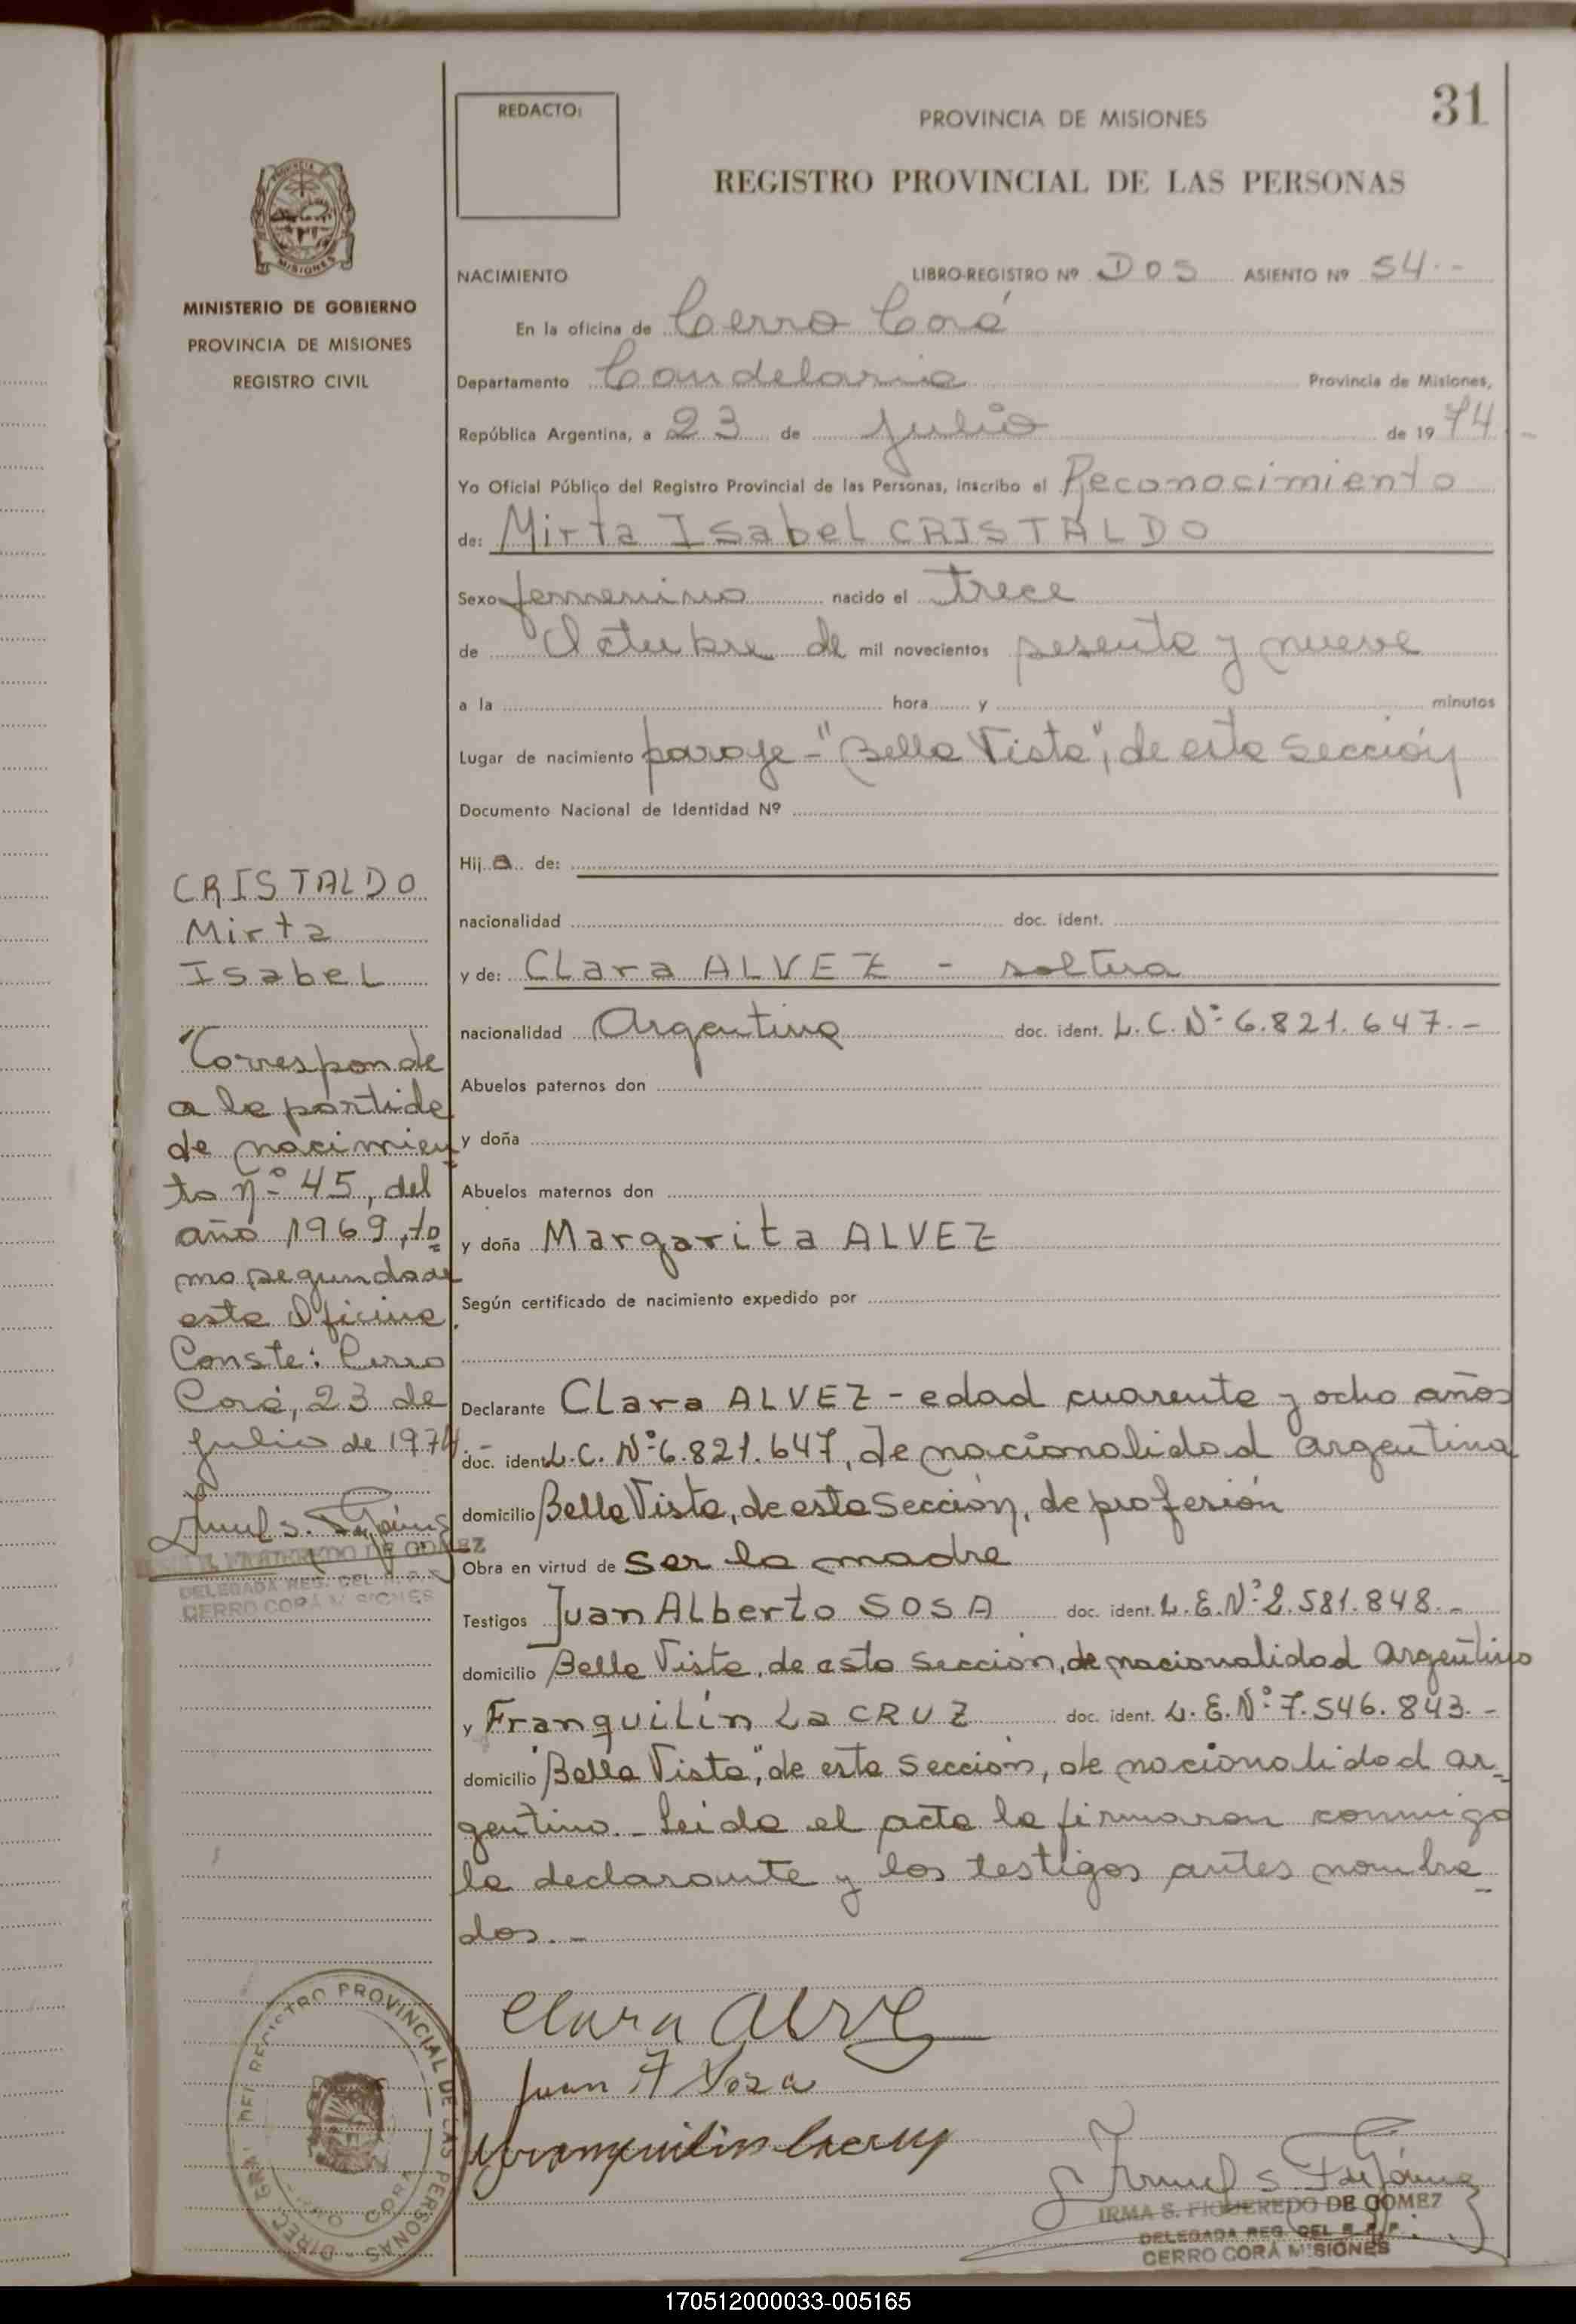 31
REDACTO:
PROVINCIA DE MISIONES
REGISTRO PROVINCIAL DE LAS PERSONAS
MISIONES
MINISTERIO DE GOBIERNO
PROVINCIA DE MISIONES
REGISTRO CIVIL
NACIMIENTO LIBRO-REGISTRO Nº Dos ASIENTO Nº 54.-
En la oficina de Cerro Corá
Departamento Candelaria Provincia de Misiones,
República Argentina, a 23 de julio de 1974.-
Yo Oficial Público del Registro Provincial de las Personas, inscribo el Reconocimiento
de: Mirta Isabel CRISTALDO
Sexo femenino nacido el trece
de Octubre de mil novecientos sesenta y nueve
a la hora y minutos
Lugar de nacimiento paraje-"Bella Vista", de esta Sección
Documento Nacional de Identidad Nº
Hij a de:
nacionalidad doc. ident.
y de: Clara ALVEZ - soltera
nacionalidad Argentina doc. ident. L.C.Nº 6.821.647.-
Abuelos paternos don
y doña
Abuelos maternos don
y doña Margarita ALVEZ
Según certificado de nacimiento expedido por
Declarante Clara ALVEZ - edad cuarenta y ocho años
doc. ident. L.C. Nº 6.821.647, de nacionalidad argentina
domicilio Bella Vista, de esta Sección, de profesión
Obra en virtud de ser la madre
Testigos Juan Alberto SOSA doc. ident. L.E.Nº 2.581.848.-
domicilio Bella Vista, de esta sección, de nacionalidad argentino
y Franquilín La CRUZ doc. ident. L.E.Nº 7.546.843.-
domicilio "Bella Vista", de esta Sección, de nacionalidad ar=
gentino.- Leida el acta la firmaron conmigo
la declarante y los testigos antes nombra-
dos.-
CRISTALDO
Mirta
Isabel
"Corresponde
a la partida
de nacimien-
to nº 45, del
año 1969, to=
mo segundo de
esta Oficina.
Conste: Cerro
Corá, 23 de
julio de 1974.-
DELEGADA REG. DEL R.P.P.
CERRO CORA MISIONES
Clara Alve
Juan A Sosa
Franquilin Lacruz
IRMA S. FIGUEREDO DE GOMEZ
DELEGADA REG. DEL R.P.P.
CERRO CORA MISIONES
DIREC. GRAL. DEL REGISTRO PROVINCIAL DE LAS PERSONAS
CERRO CORA
170512000033-005165